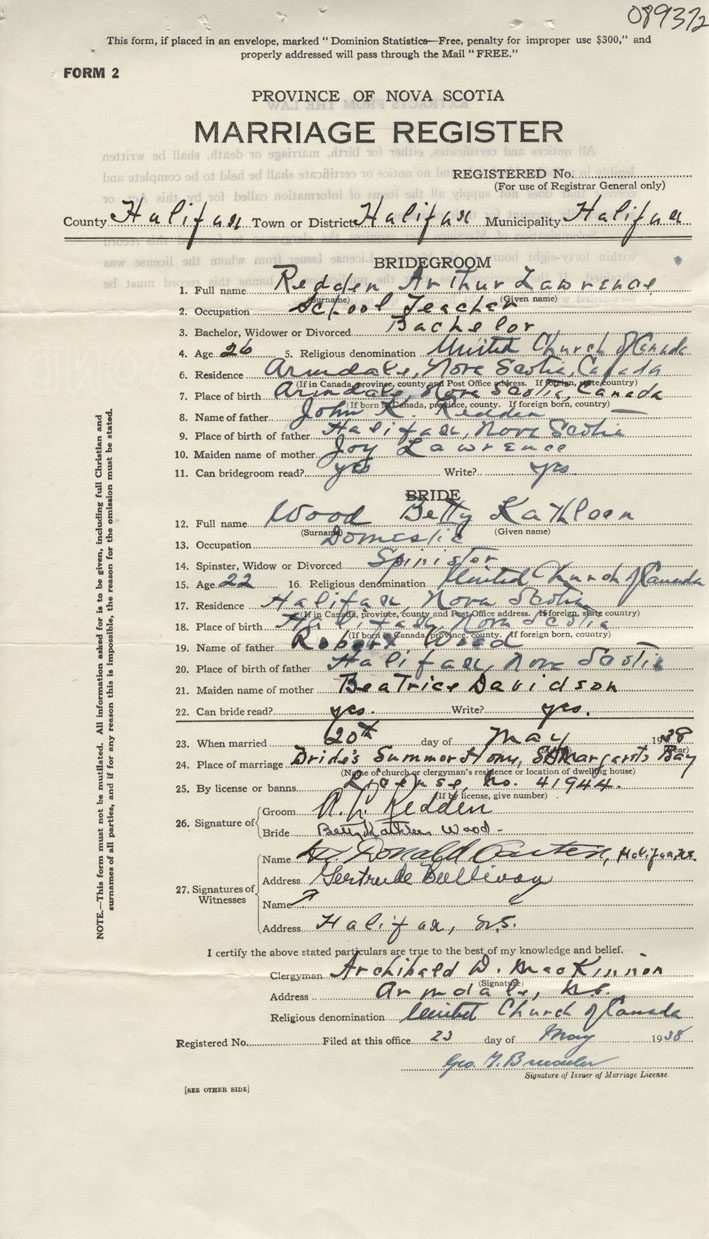 089372
This form, if placed in an envelope, marked "Dominion Statistics—Free, penalty for improper use $300," and
properly addressed will pass through the Mail "FREE."
FORM 2
PROVINCE OF NOVA SCOTIA
MARRIAGE REGISTER
REGISTERED No.
(For use of Registrar General only)
County Halifax Town or District Halifax Municipality Halifax
BRIDEGROOM
1. Full name Redden Arthur Lawrence
(Surname) (Given name)
2. Occupation School Teacher
3. Bachelor, Widower or Divorced Bachelor
4. Age 26 5. Religious denomination United Church of Canada
6. Residence Armdale, Nova Scotia, Canada
(If in Canada, province, county and Post Office address. If foreign, state country)
7. Place of birth Armdale, Nova Scotia, Canada
(If born in Canada, province, county. If foreign born, country)
8. Name of father John Redden
9. Place of birth of father Halifax, Nova Scotia
10. Maiden name of mother Joy Lawrence
11. Can bridegroom read? yes Write? yes
BRIDE
12. Full name Wood Betty Kathleen
(Surname) (Given name)
13. Occupation Domestic
14. Spinster, Widow or Divorced Spinister
15. Age 22 16. Religious denomination United Church of Canada
17. Residence Halifax, Nova Scotia
(If in Canada, province, county and Post Office address. If foreign, state country)
18. Place of birth Halifax, Nova Scotia
(If born in Canada, province, county. If foreign born, country)
19. Name of father Robert Wood
20. Place of birth of father Halifax, Nova Scotia
21. Maiden name of mother Beatrice Davidson
22. Can bride read? yes. Write? yes.
23. When married 20th day of May 1938
(Year)
24. Place of marriage Bride's Summer Home, St Margarets Bay
(Name of church or clergyman's residence or location of dwelling house)
25. By license or banns. License, No. 41944.
(If by license, give number)
26. Signature of Groom A. L. Redden
Bride Betty Kathleen Wood
27. Signatures of Witnesses
Name Donald Halifax N.S.
Address Gertrude
Name
Address Halifax, N.S.
I certify the above stated particulars are true to the best of my knowledge and belief.
Clergyman Archibald D. MacKinnon
(Signature)
Address Armdale, N.S.
Religious denomination United Church of Canada
Registered No. Filed at this office 23 day of May 1938
Geo.
Signature of Issuer of Marriage License
[SEE OTHER SIDE]
NOTE.—This form must not be mutilated. All information asked for is to be given, including full Christian and
surnames of all parties, and if for any reason this is impossible, the reason for the omission must be stated.